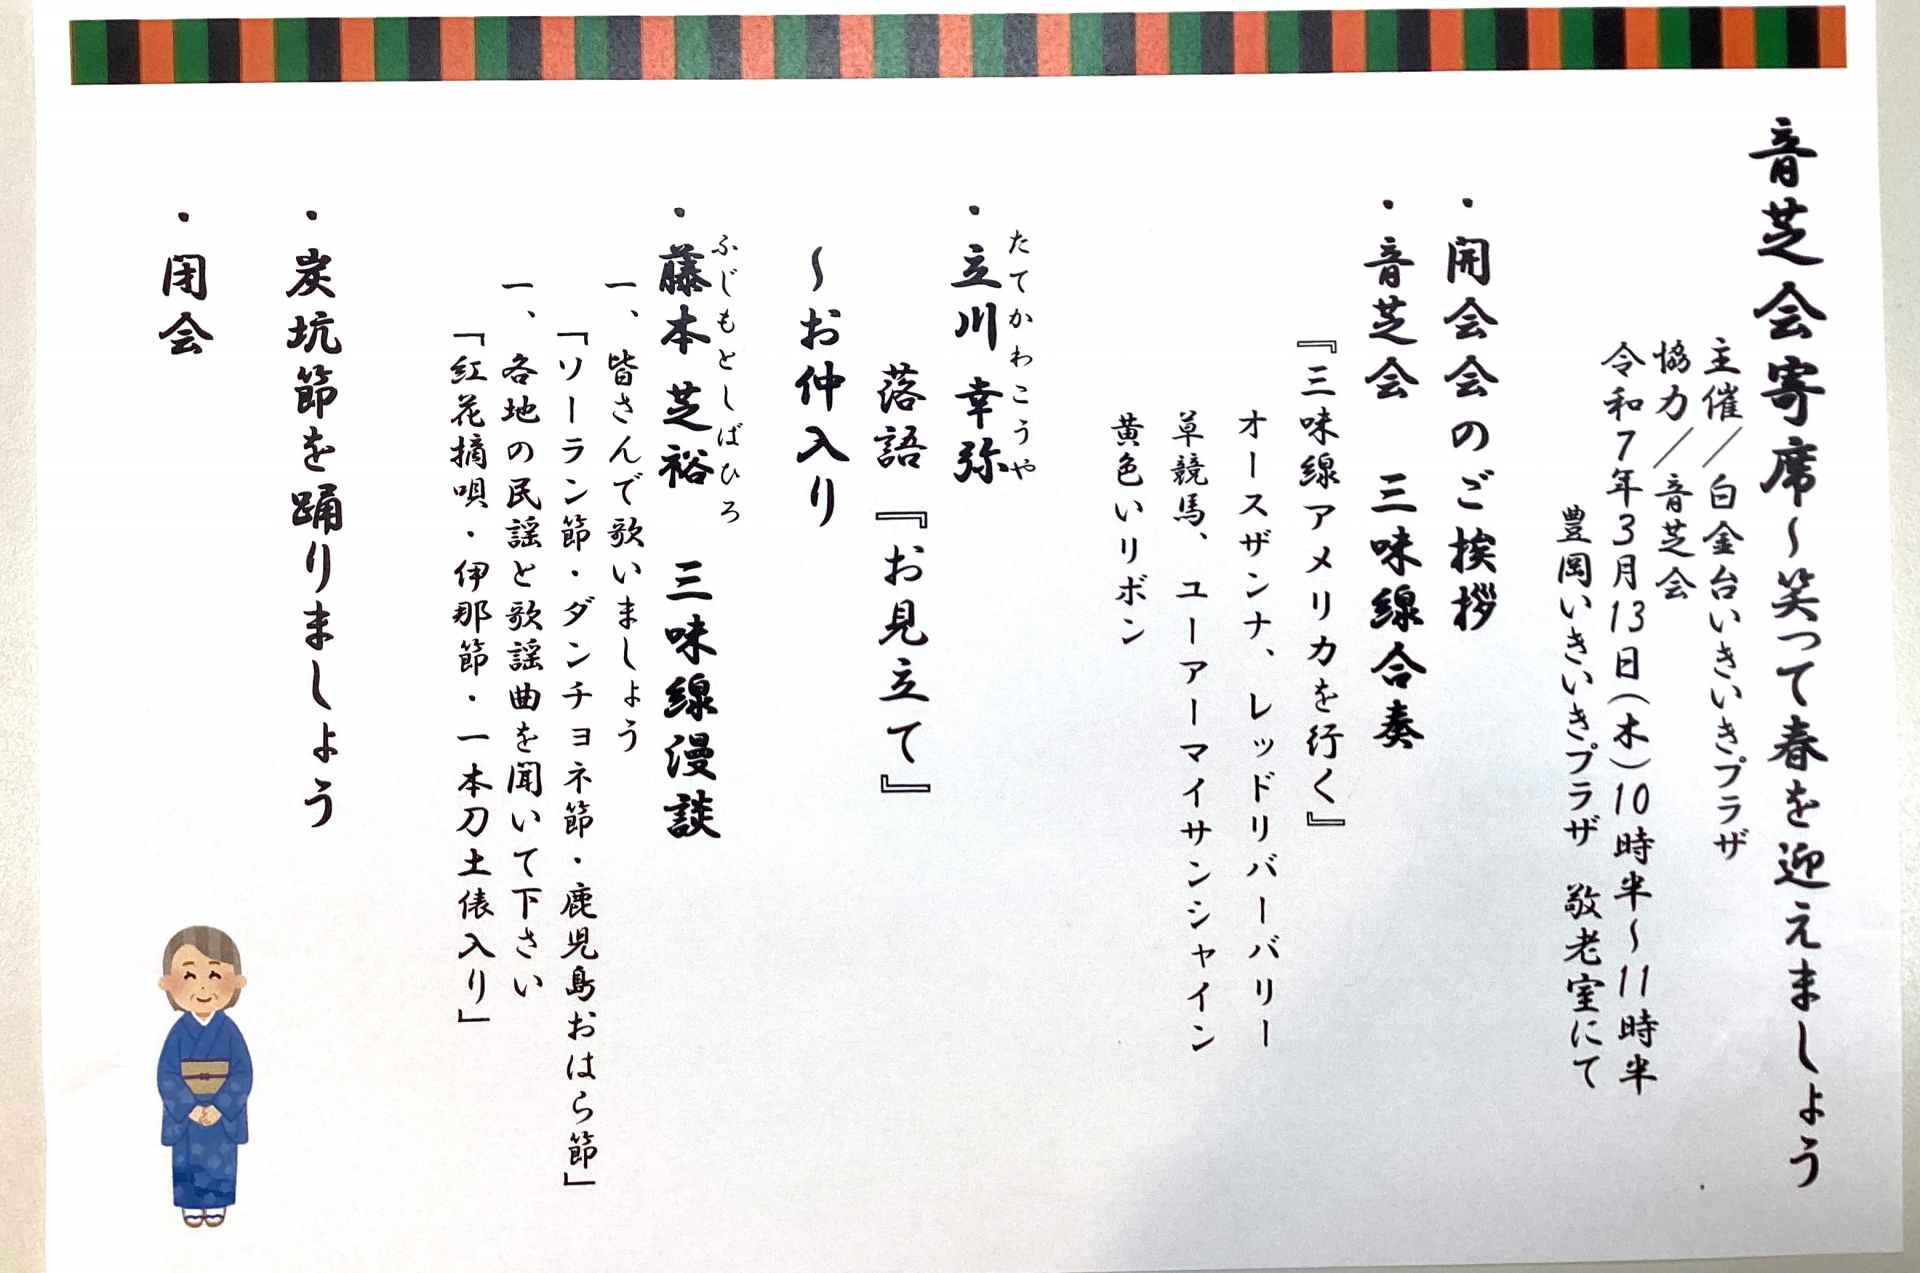 音芝会寄席～笑って春を迎えましょう
主催／白金台いきいきプラザ
協力／音芝会
令和7年3月13日(木)10時半～11時半
豊岡いきいきプラザ　敬老室にて
・開会会のご挨拶
・音芝会　三味線合奏
『三味線アメリカを行く』
オースザンナ、レッドリバーバリー
草競馬、ユーアーマイサンシャイン
黄色いリボン
たてかわこうや
・立川幸弥
落語『お見立て』
～お仲入り
ふじもとしばひろ
・藤本芝裕　三味線漫談
一、皆さんで歌いましょう
「ソーラン節・ダンチョネ節・鹿児島おはら節」
一、各地の民謡と歌謡曲を聞いて下さい
「紅花摘唄・伊那節・一本刀土俵入り」
・炭坑節を踊りましょう
・閉会